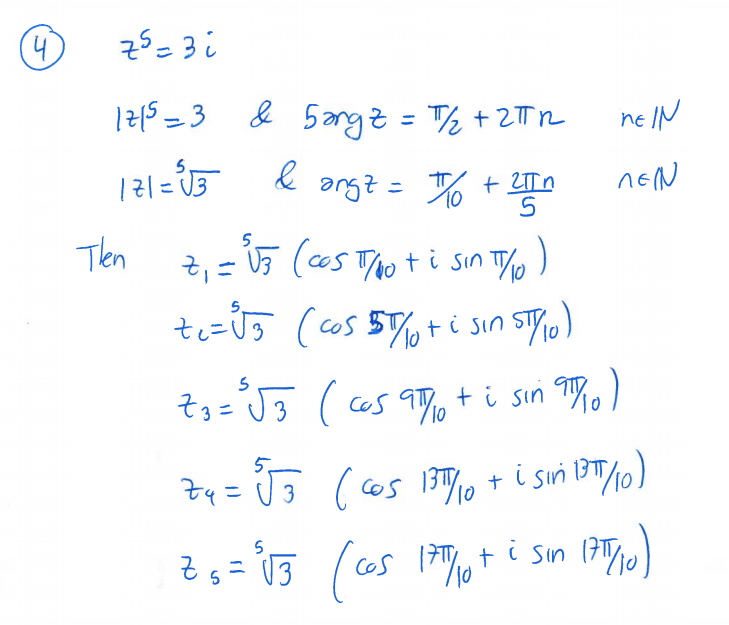 ④ z⁵ = 3i
|z|⁵ = 3 & 5 arg z = π/2 + 2πn n∈ℕ
|z| = ⁵√3 & arg z = π/10 + 2πn/5 n∈ℕ
Then z₁ = ⁵√3 (cos π/10 + i sin π/10)
z₂ = ⁵√3 (cos 5π/10 + i sin 5π/10)
z₃ = ⁵√3 (cos 9π/10 + i sin 9π/10)
z₄ = ⁵√3 (cos 13π/10 + i sin 13π/10)
z₅ = ⁵√3 (cos 17π/10 + i sin 17π/10)